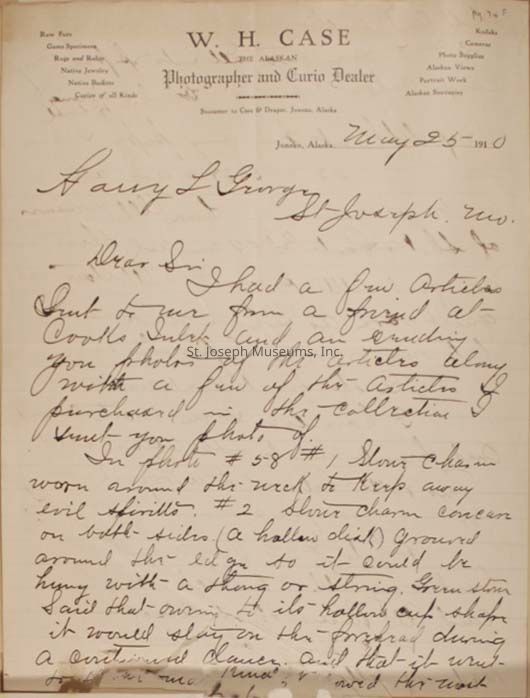 Raw Furs
Game Specimens
Rugs and Robes
Native Jewelry
Native Baskets
Curios of all Kinds
W. H. CASE
THE ALASKAN
Photographer and Curio Dealer
Successor to Case & Draper, Juneau, Alaska
Kodaks
Cameras
Photo Supplies
Alaskan Views
Portrait Work
Alaskan Souvenirs
Juneau, Alaska May 25 1910
Harry L George
St Joseph. Mo.
Dear Sir
I had a few Articles
Sent to me from a friend at
Cooks Inlet and am sending
you photos of the articles along
with a few of the Articles I
purchased in the collection I
sent you photo of.
In photo #58 #1 Stone charm
worn around the neck to keep away
evil spirits. #2 Stone charm concave
on both sides (a hollow disk) Grooved
around the edge so it could be
hung with a thong or string.
said that owing to its hollow cup shape
it would stay on the forehead during
a continued dance. and that it went
the next
St. Joseph Museums, Inc.